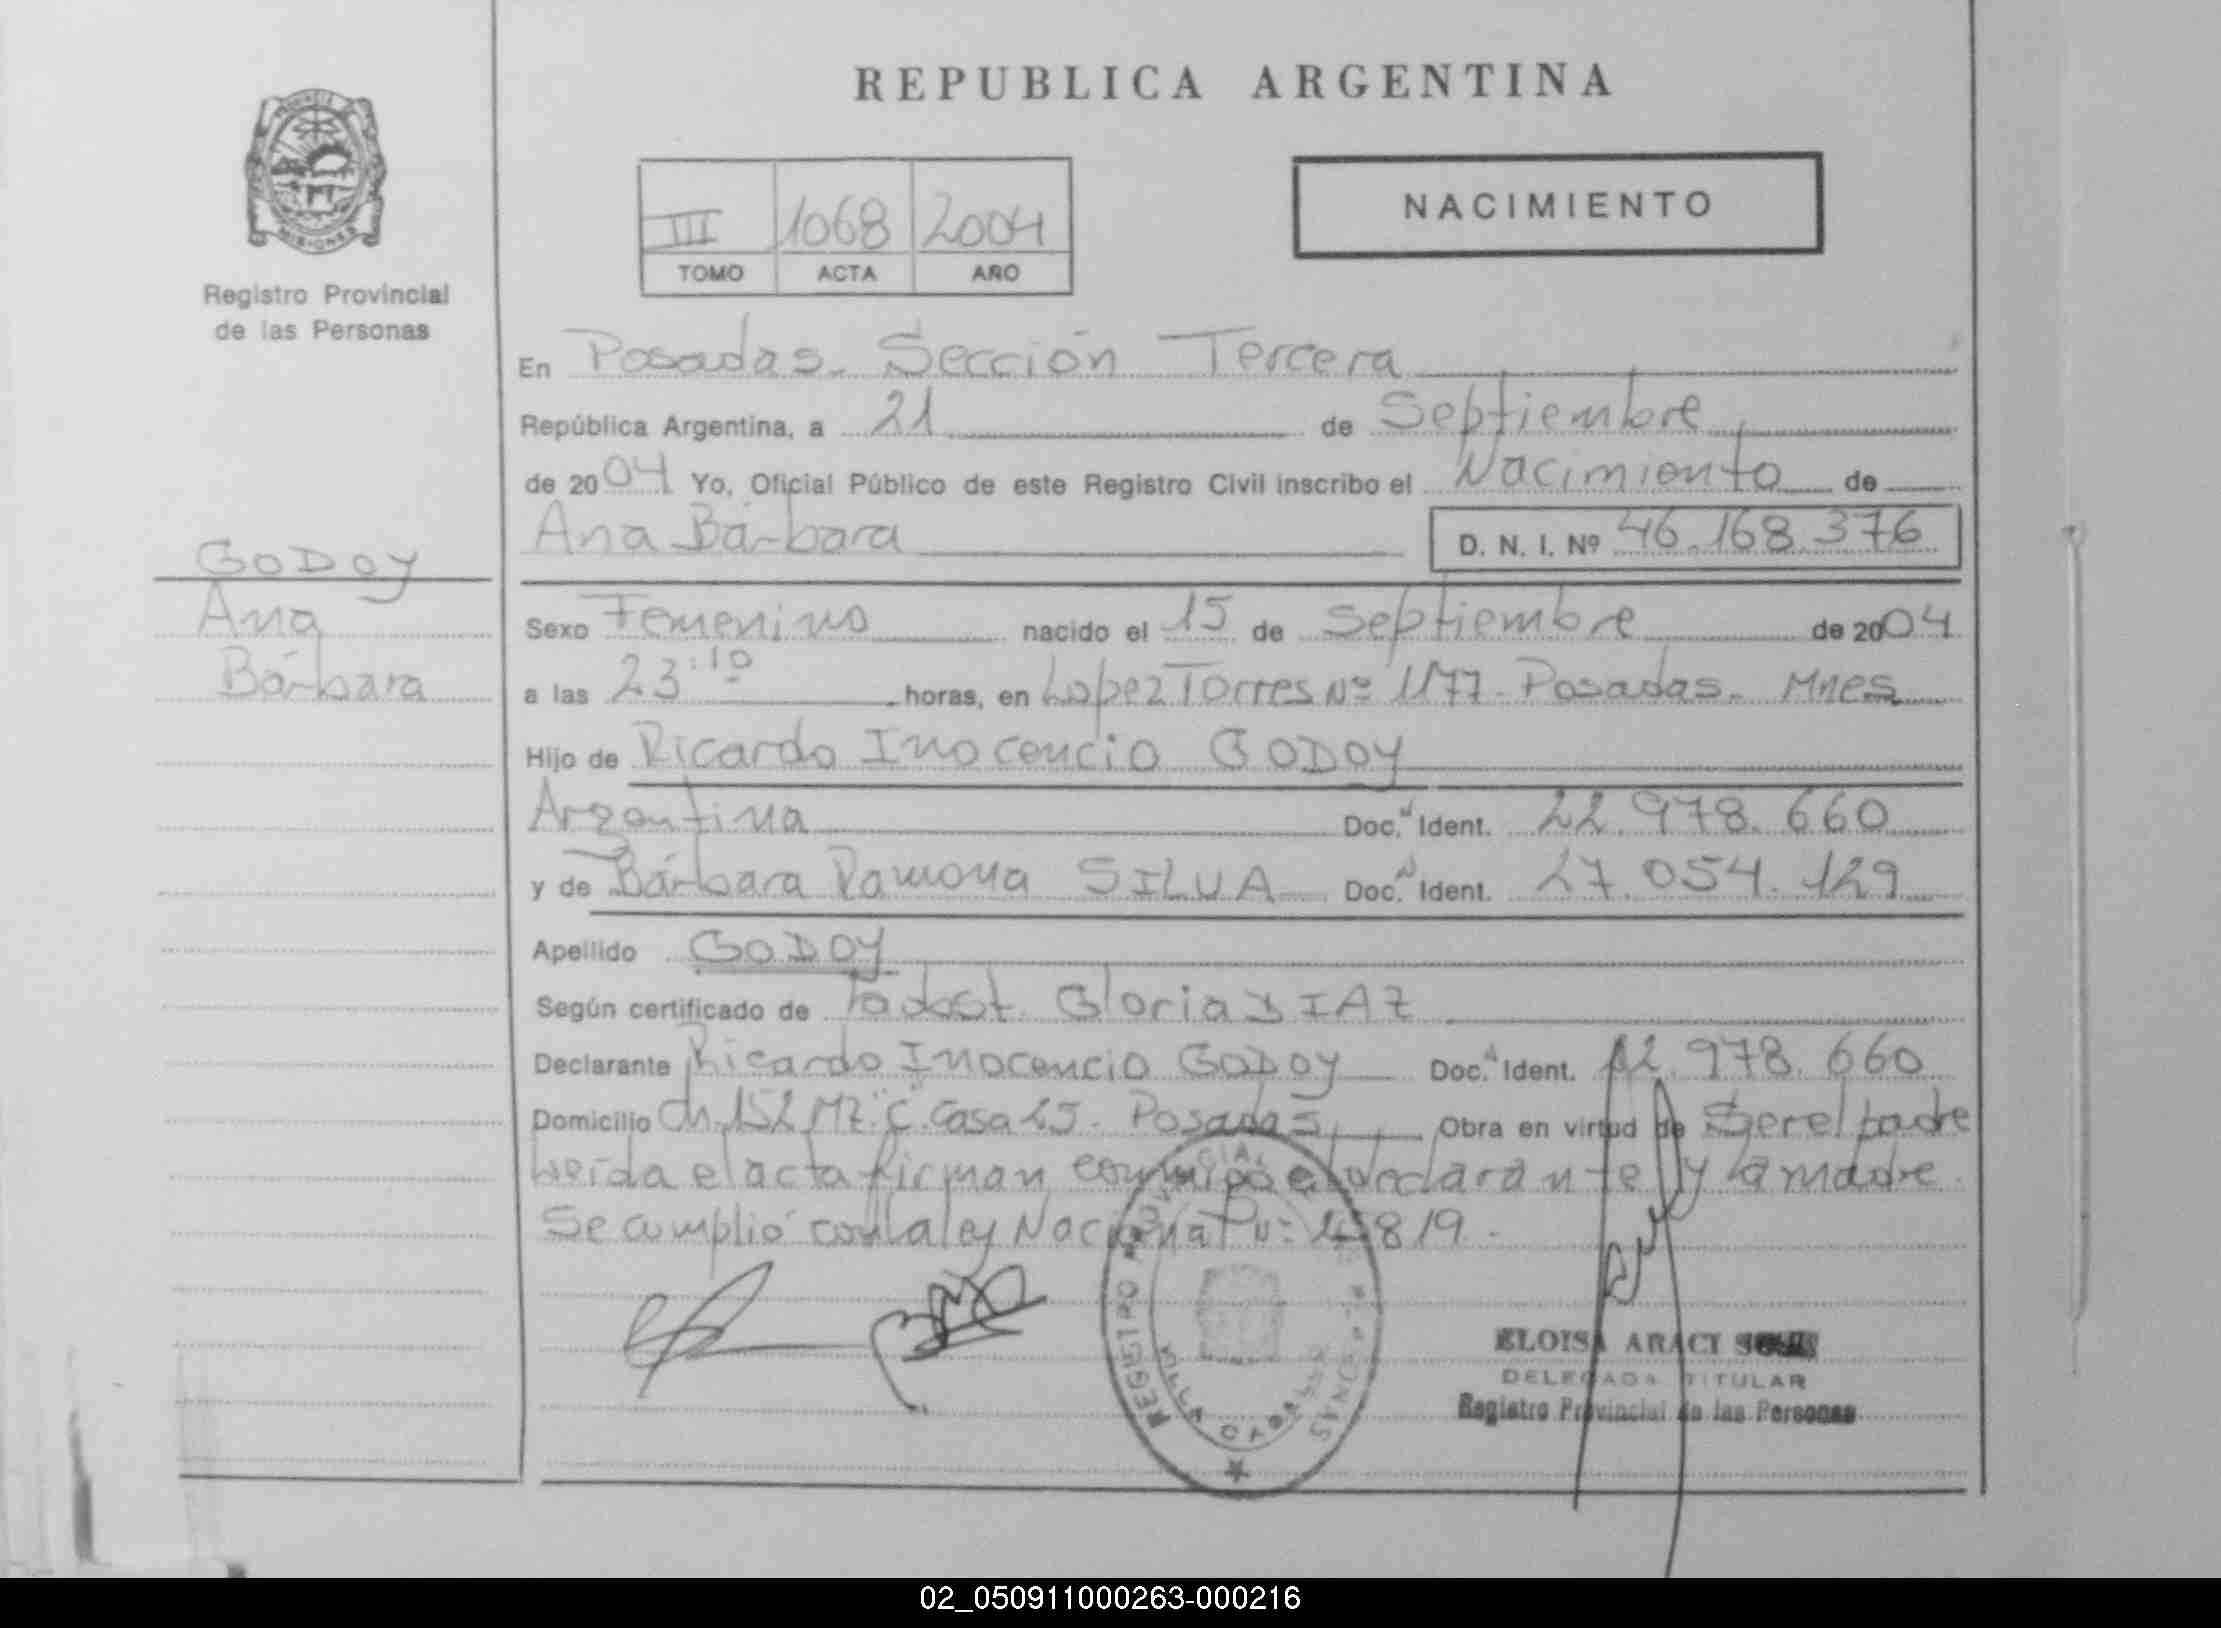 REPUBLICA ARGENTINA
MISIONES
Registro Provincial
de las Personas
III 1068 2004
TOMO ACTA AÑO
NACIMIENTO
En Posadas. Sección Tercera
República Argentina, a 21 de Septiembre
de 2004 Yo, Oficial Público de este Registro Civil inscribo el Nacimiento de
Ana Bárbara D. N. I. Nº 46.168.376
GODOY
Ana
Bárbara
Sexo Femenino nacido el 15 de Septiembre de 2004
a las 23:10 horas, en Lopez Torres Nº 1177. Posadas. Mnes
Hijo de Ricardo Inocencio GODOY
Argentina Doc. Ident. 22.978.660
y de Bárbara Ramona SILVA Doc. Ident. 27.054.129
Apellido GODOY
Según certificado de Gloria DIAZ
Declarante Ricardo Inocencio GODOY Doc. Ident. 22.978.660
Domicilio Ch. 152 Mz. "C" Casa 25. Posadas Obra en virtud de Ser el padre
Leída el acta firman conmigo el declarante y la madre.
Se cumplió con la ley Nacional
REGISTRO PROVINCIAL DE LAS PERSONAS
VILLA CABELLO
ELOISA ARACI
DELEGADA TITULAR
Registro Provincial de las Personas
02_050911000263-000216